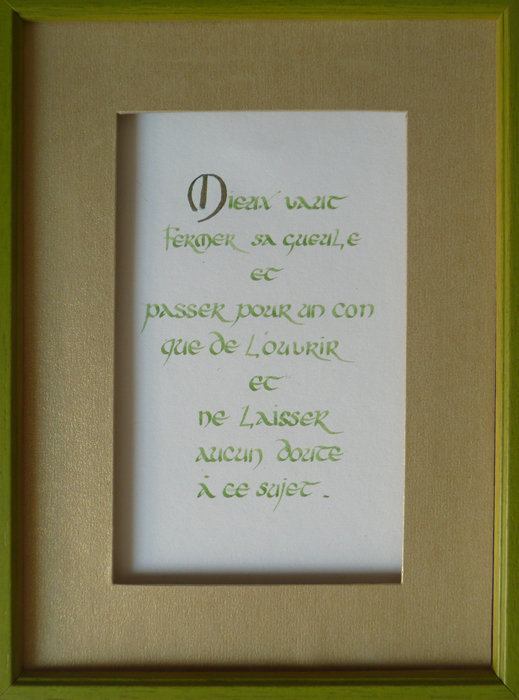 Mieux vaut
fermer sa gueule
et
passer pour un con
que de l'ouvrir
et
ne laisser
aucun doute
à ce sujet.